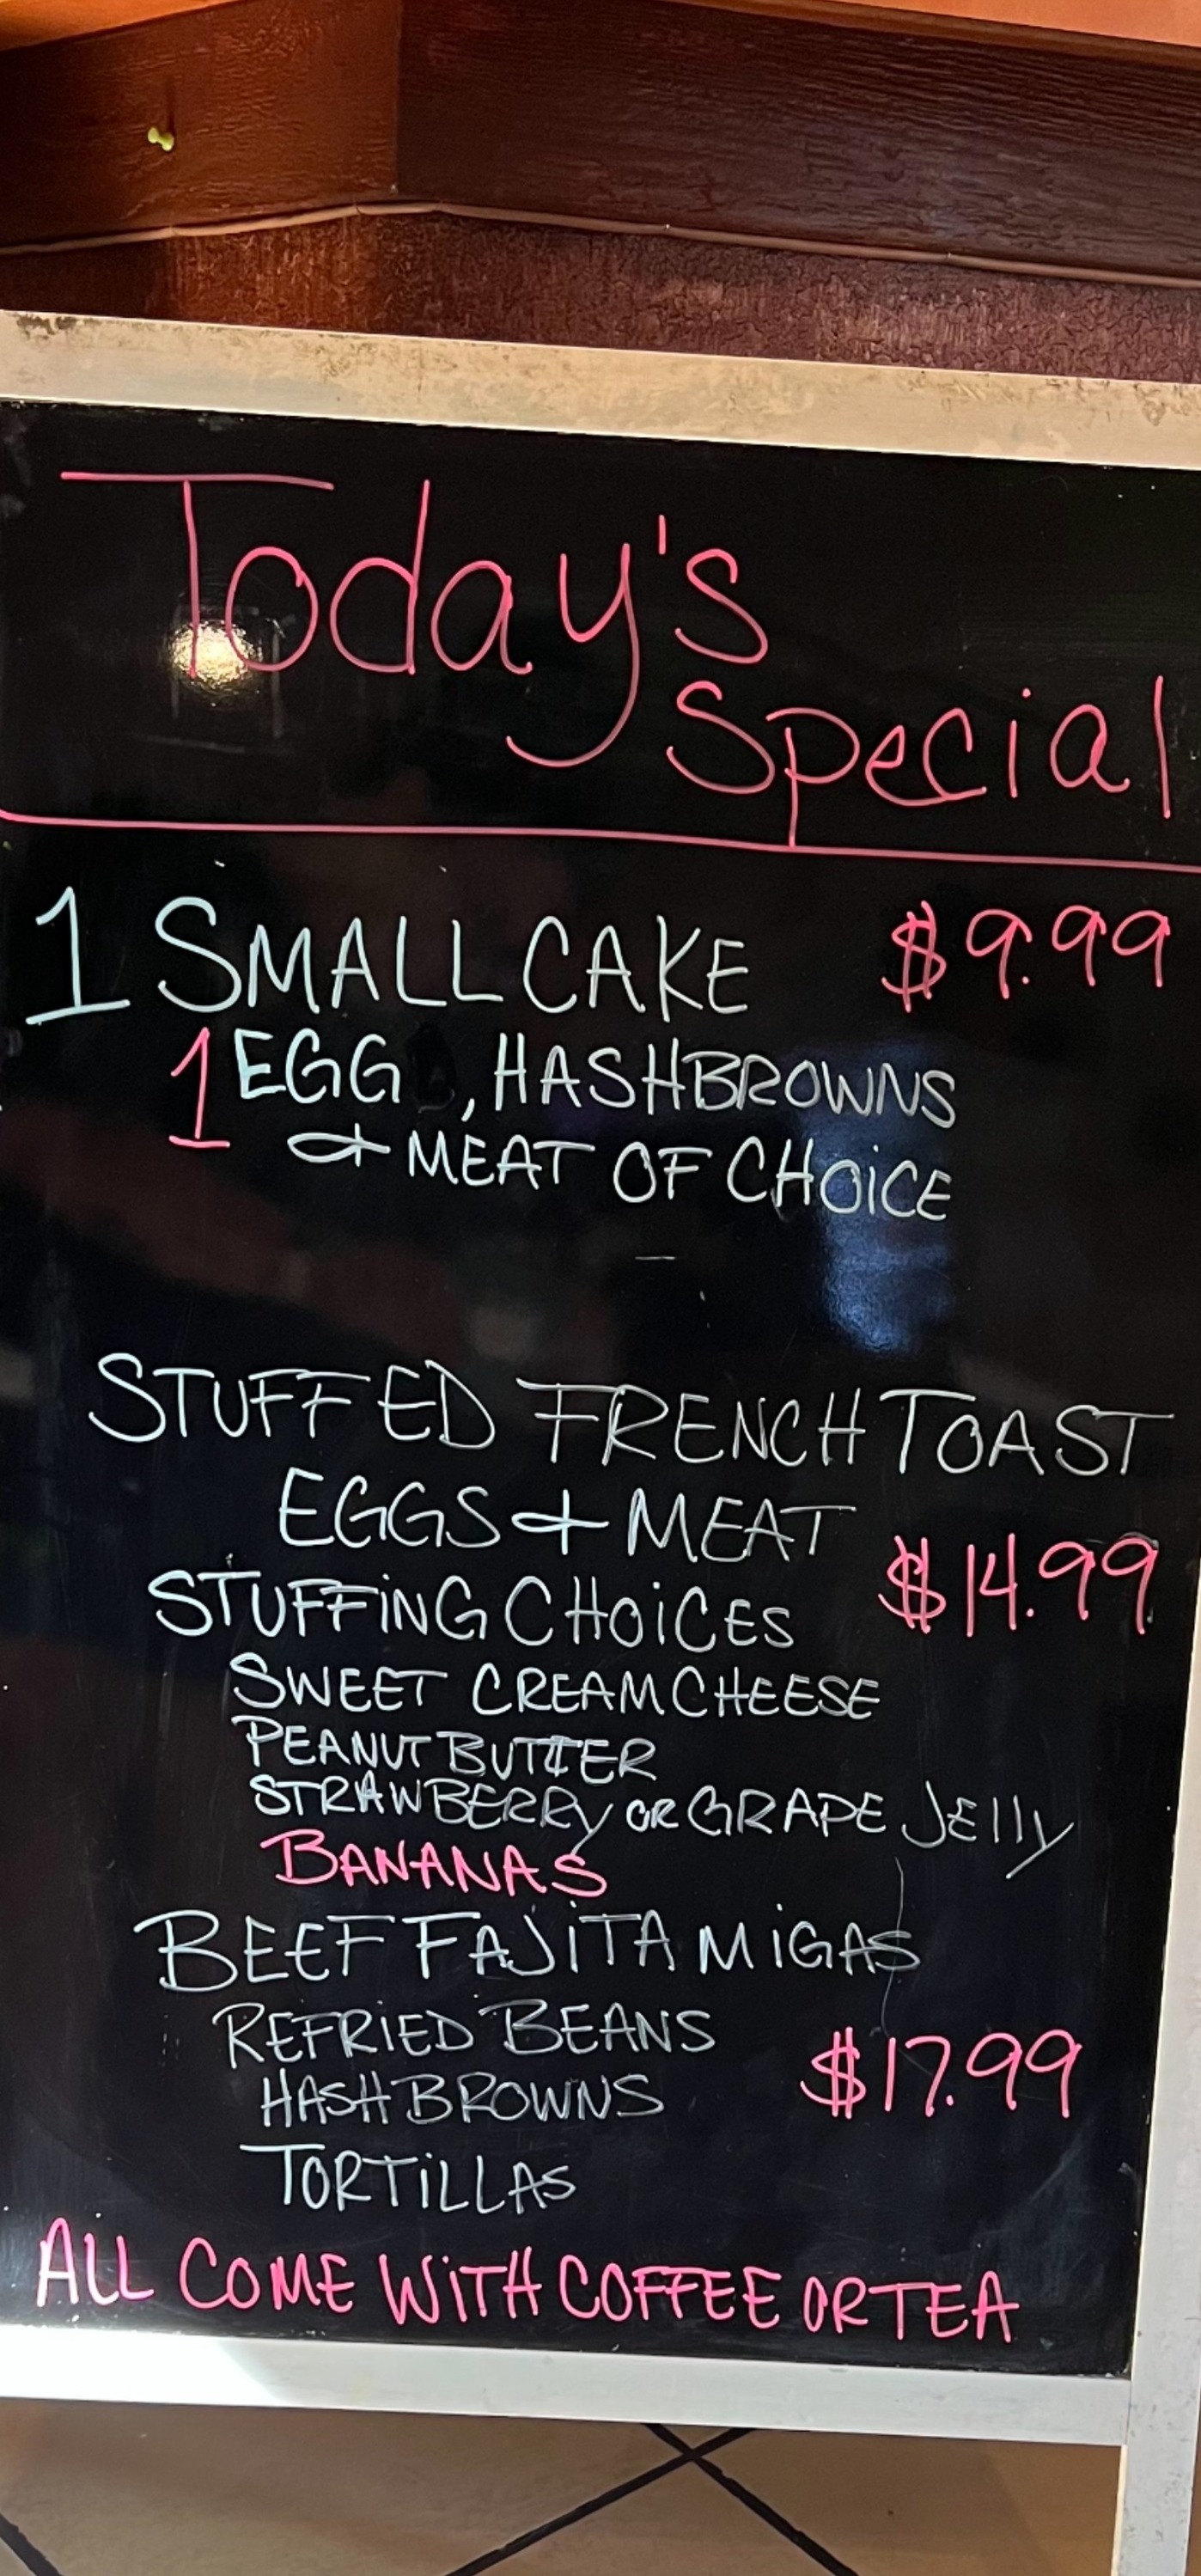 Today's
Special
1 SMALL CAKE $9.99
1 EGG, HASHBROWNS
& MEAT OF CHOICE
STUFFED FRENCH TOAST
EGGS & MEAT
$14.99
STUFFING CHOICES
SWEET CREAM CHEESE
PEANUT BUTTER
STRAWBERRY OR GRAPE JELLY
BANANAS
BEEF FAJITA MIGAS
REFRIED BEANS
$17.99
HASHBROWNS
TORTILLAS
ALL COME WITH COFFEE OR TEA